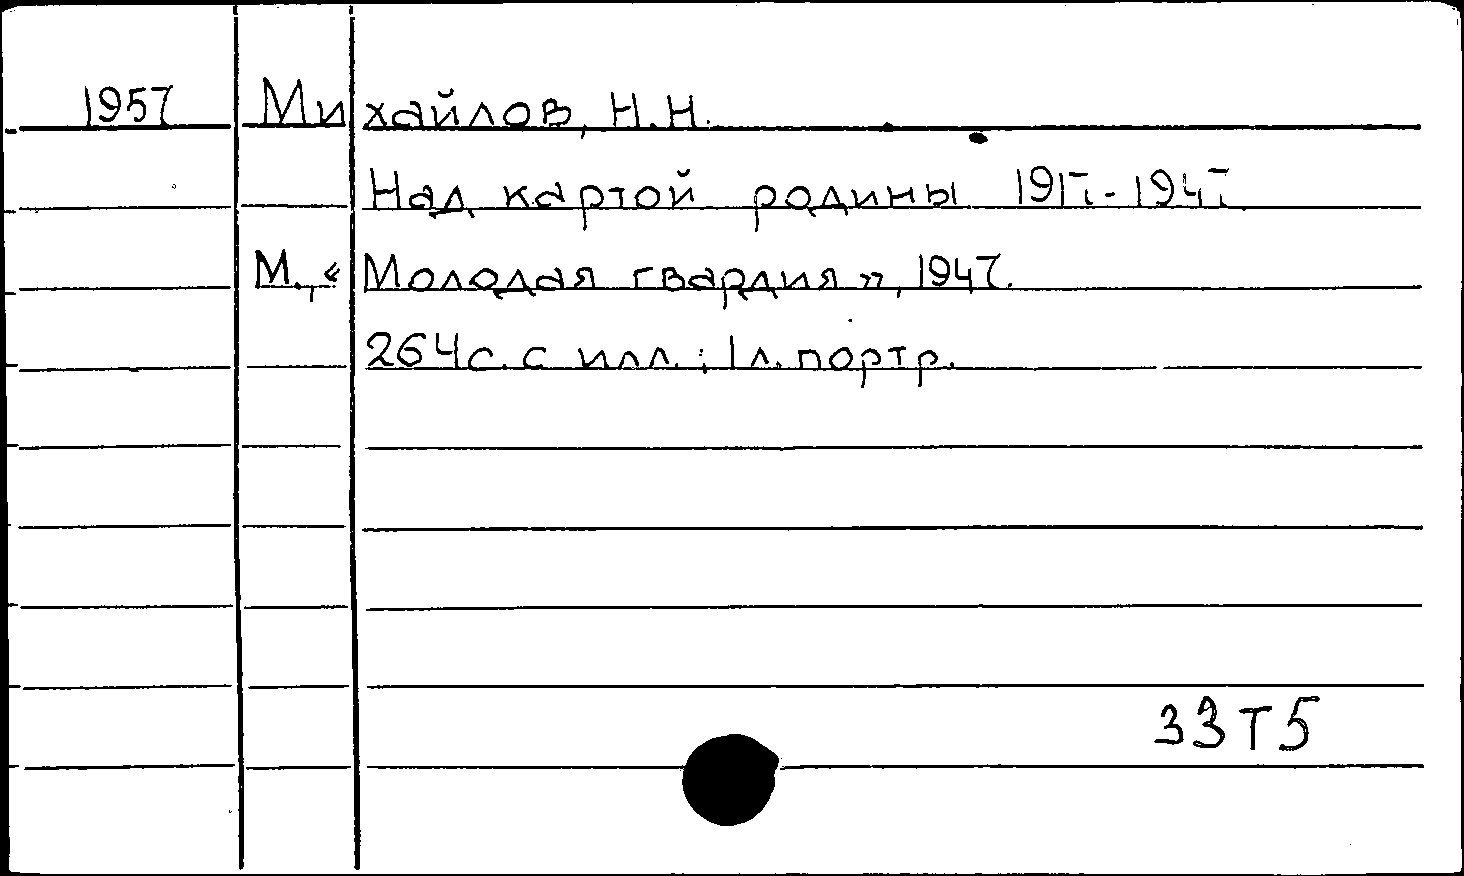 1957 Михайлов, Н.Н.
Над картой родины 1917-1947
М., «Молодая гвардия», 1947.
264с. с илл.; 1л. портр.
33Т5